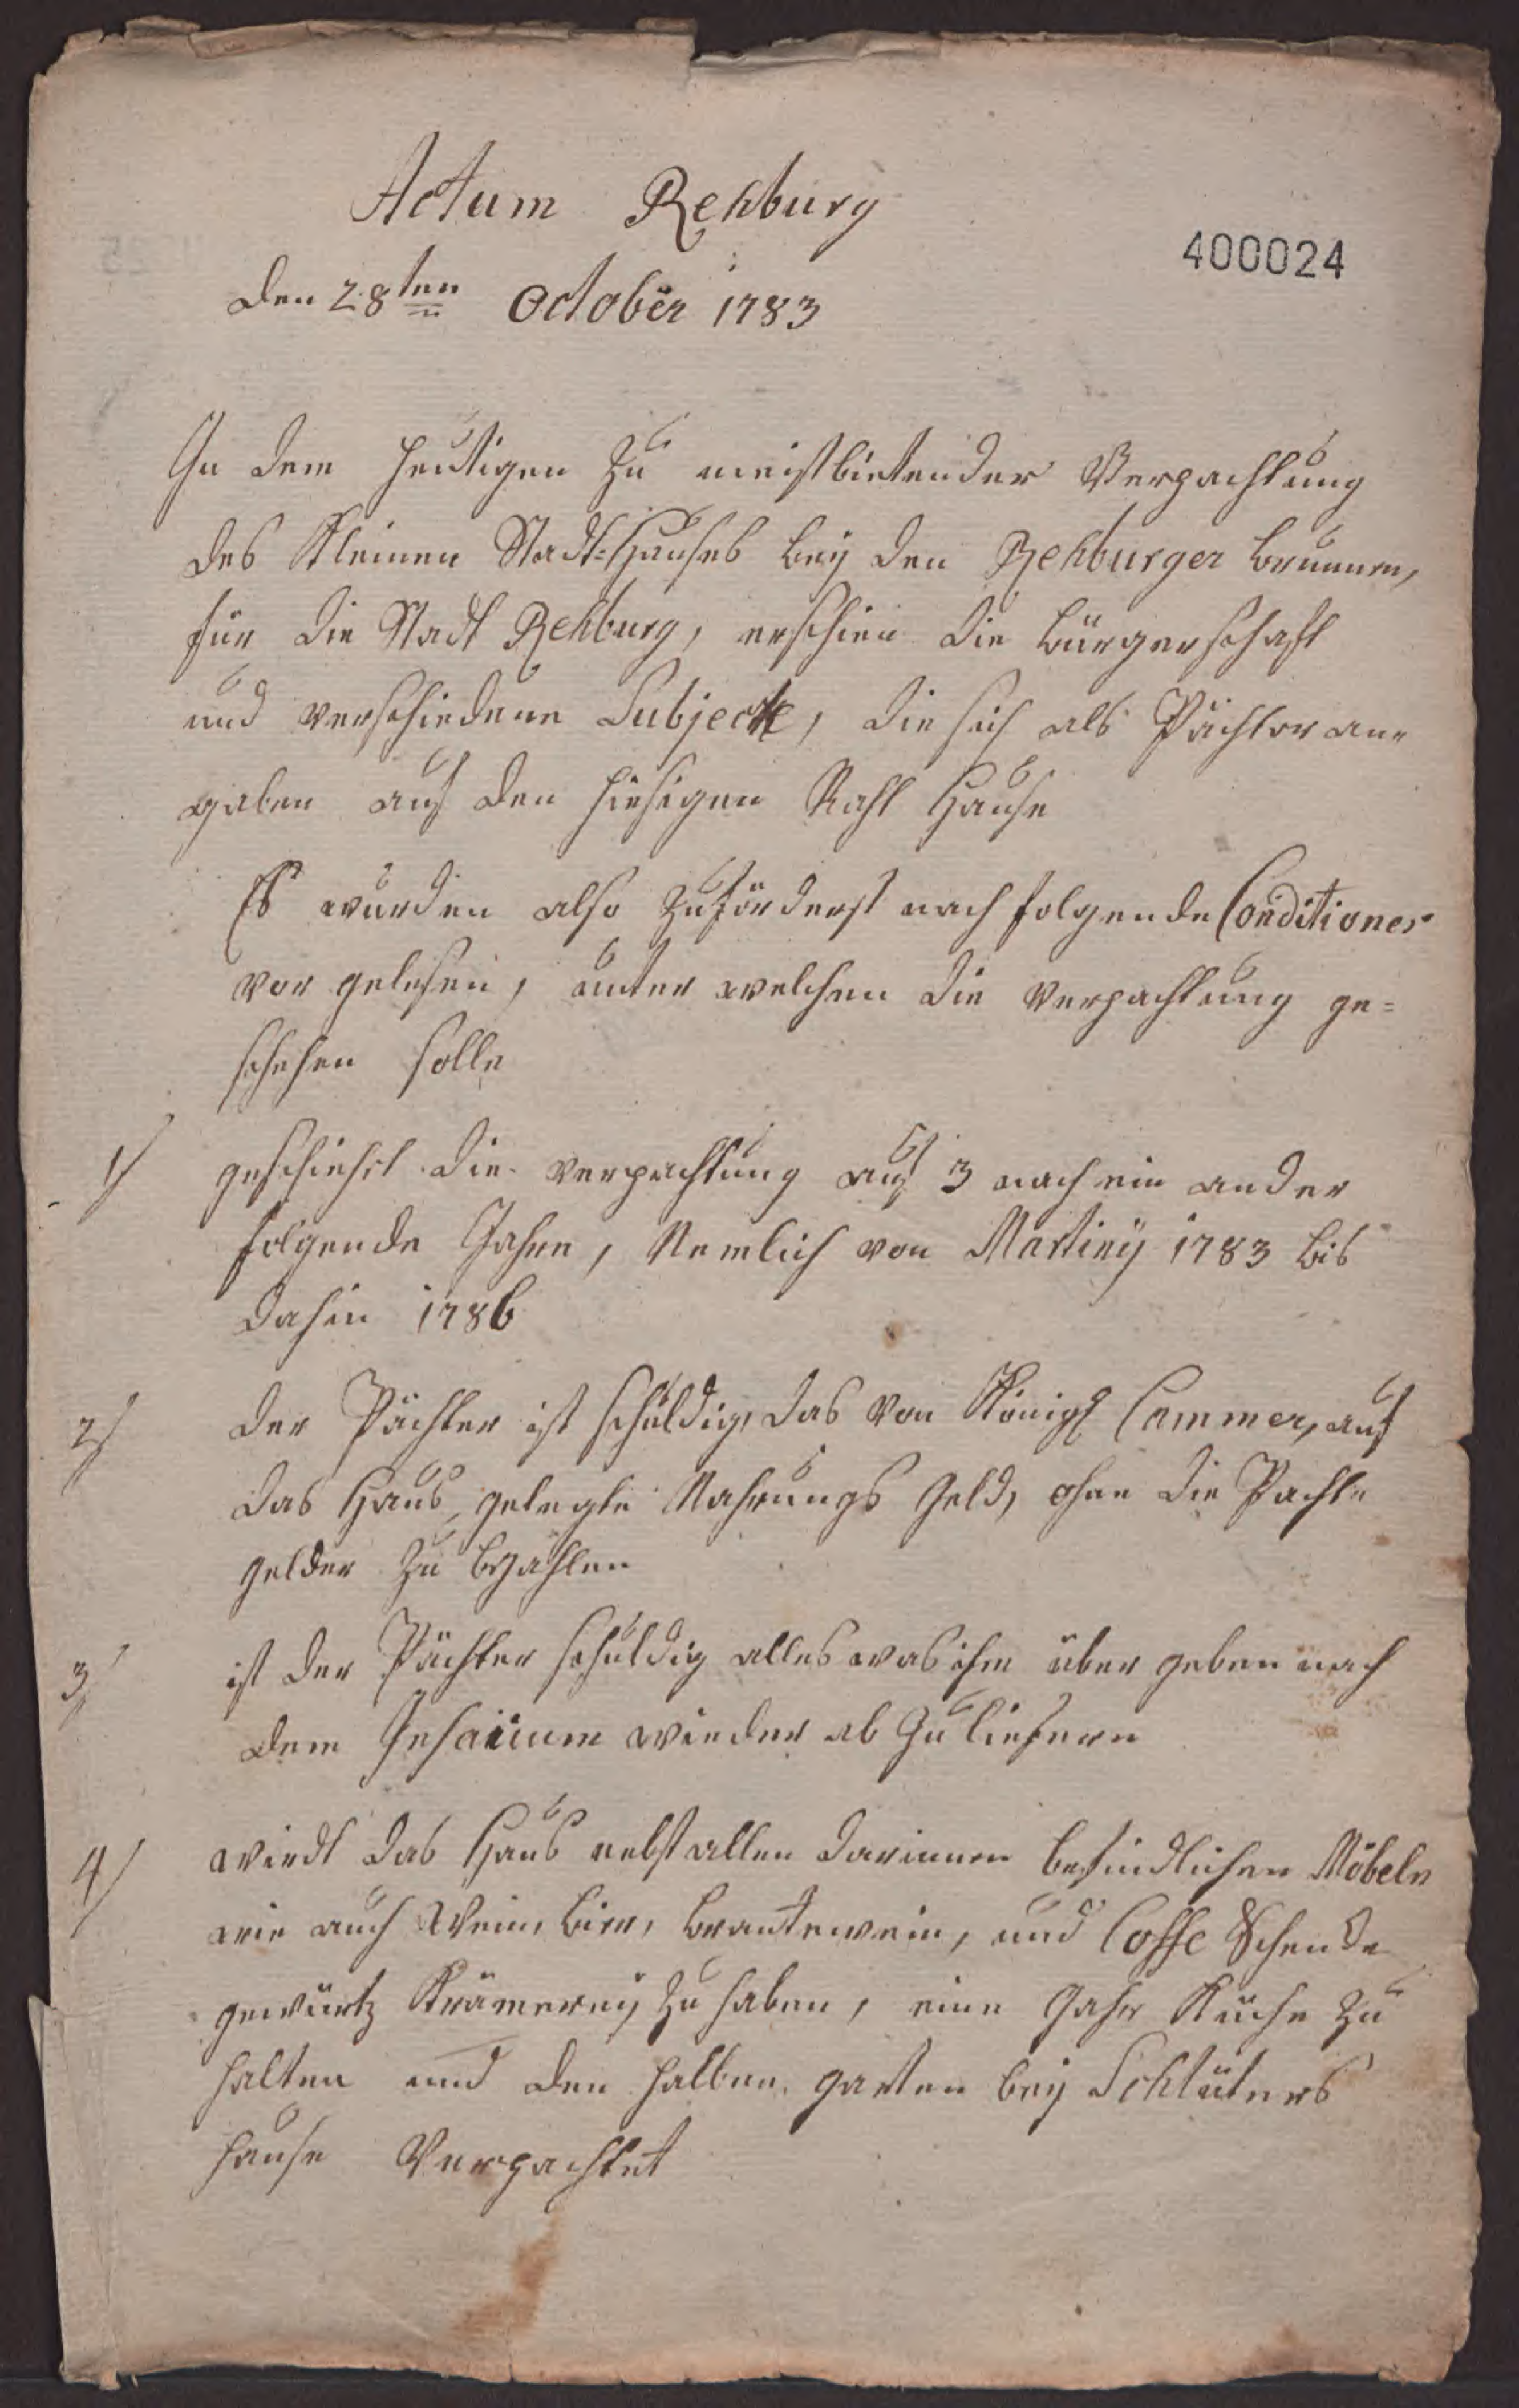 Actum Rehburg
400024
den 28ten October 1783
In dem heutigen zu meistbietender Verpachtung
des Kleinen Stadt-Hauses bey den Rehburger brunnen,
für die Stadt Rehburg, erschien die bürgerschaft
und verschiedene Subjecte, die sich als Pächter an-
gaben auf den hiesigen Raht Hause
Es wurden also zuförderst nach folgende Conditiones
vor gelesen, unter welchen die verpachtung ge=
schehen solle
1/ geschiehet die verpachtung auf 3 nach ein ander
folgende Jahre, Nemlich von Martiny 1783 bis
dahin 1786
2/ der Pächter ist schuldig, das von Königl Cammer, auf
das Haus, gelegte Nahrungs Geld, ohne die Pacht-
gelder zu bezahlen
3/ ist der Pächter schuldig alles was ihm über geben nach
dem wieder ab zu liefern
4/ wirdt das Haus nebst allen darinnen befindlichen Möbeln
wie auch Wein, bier, brantewein, und Coffe Schencke
gewürtz Krämerey zu haben, eine Gahr Küche zu
halten und den halben garten bey Schlüters
hause Verpachtet